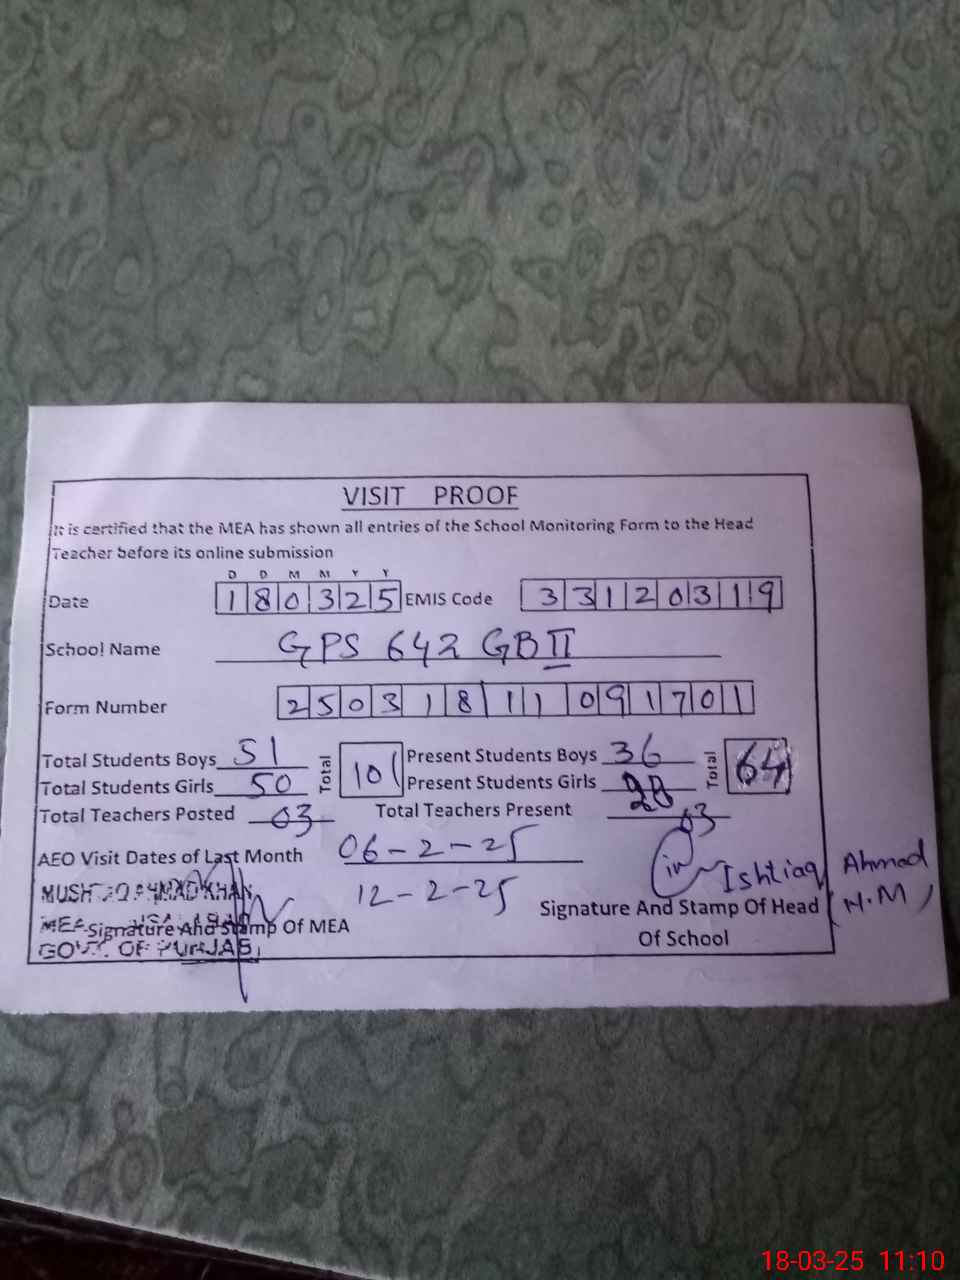 VISIT PROOF
It is certified that the MEA has shown all entries of the School Monitoring Form to the Head
Teacher before its online submission
D D M M Y Y
Date 180325 EMIS Code 33120319
School Name GPS 642 GB II
Form Number 25031811091701
Total Students Boys 51 Total 101 Present Students Boys 36 Total 64
Total Students Girls 50 Present Students Girls 28
Total Teachers Posted 03 Total Teachers Present 03
AEO Visit Dates of Last Month 06-2-25
12-2-25
Ishtiaq Ahmad
H.M
KHAN
MEA
Signature And Stamp Of MEA
GOVT. OF PUNJAB
Signature And Stamp Of Head
Of School
18-03-25 11:10